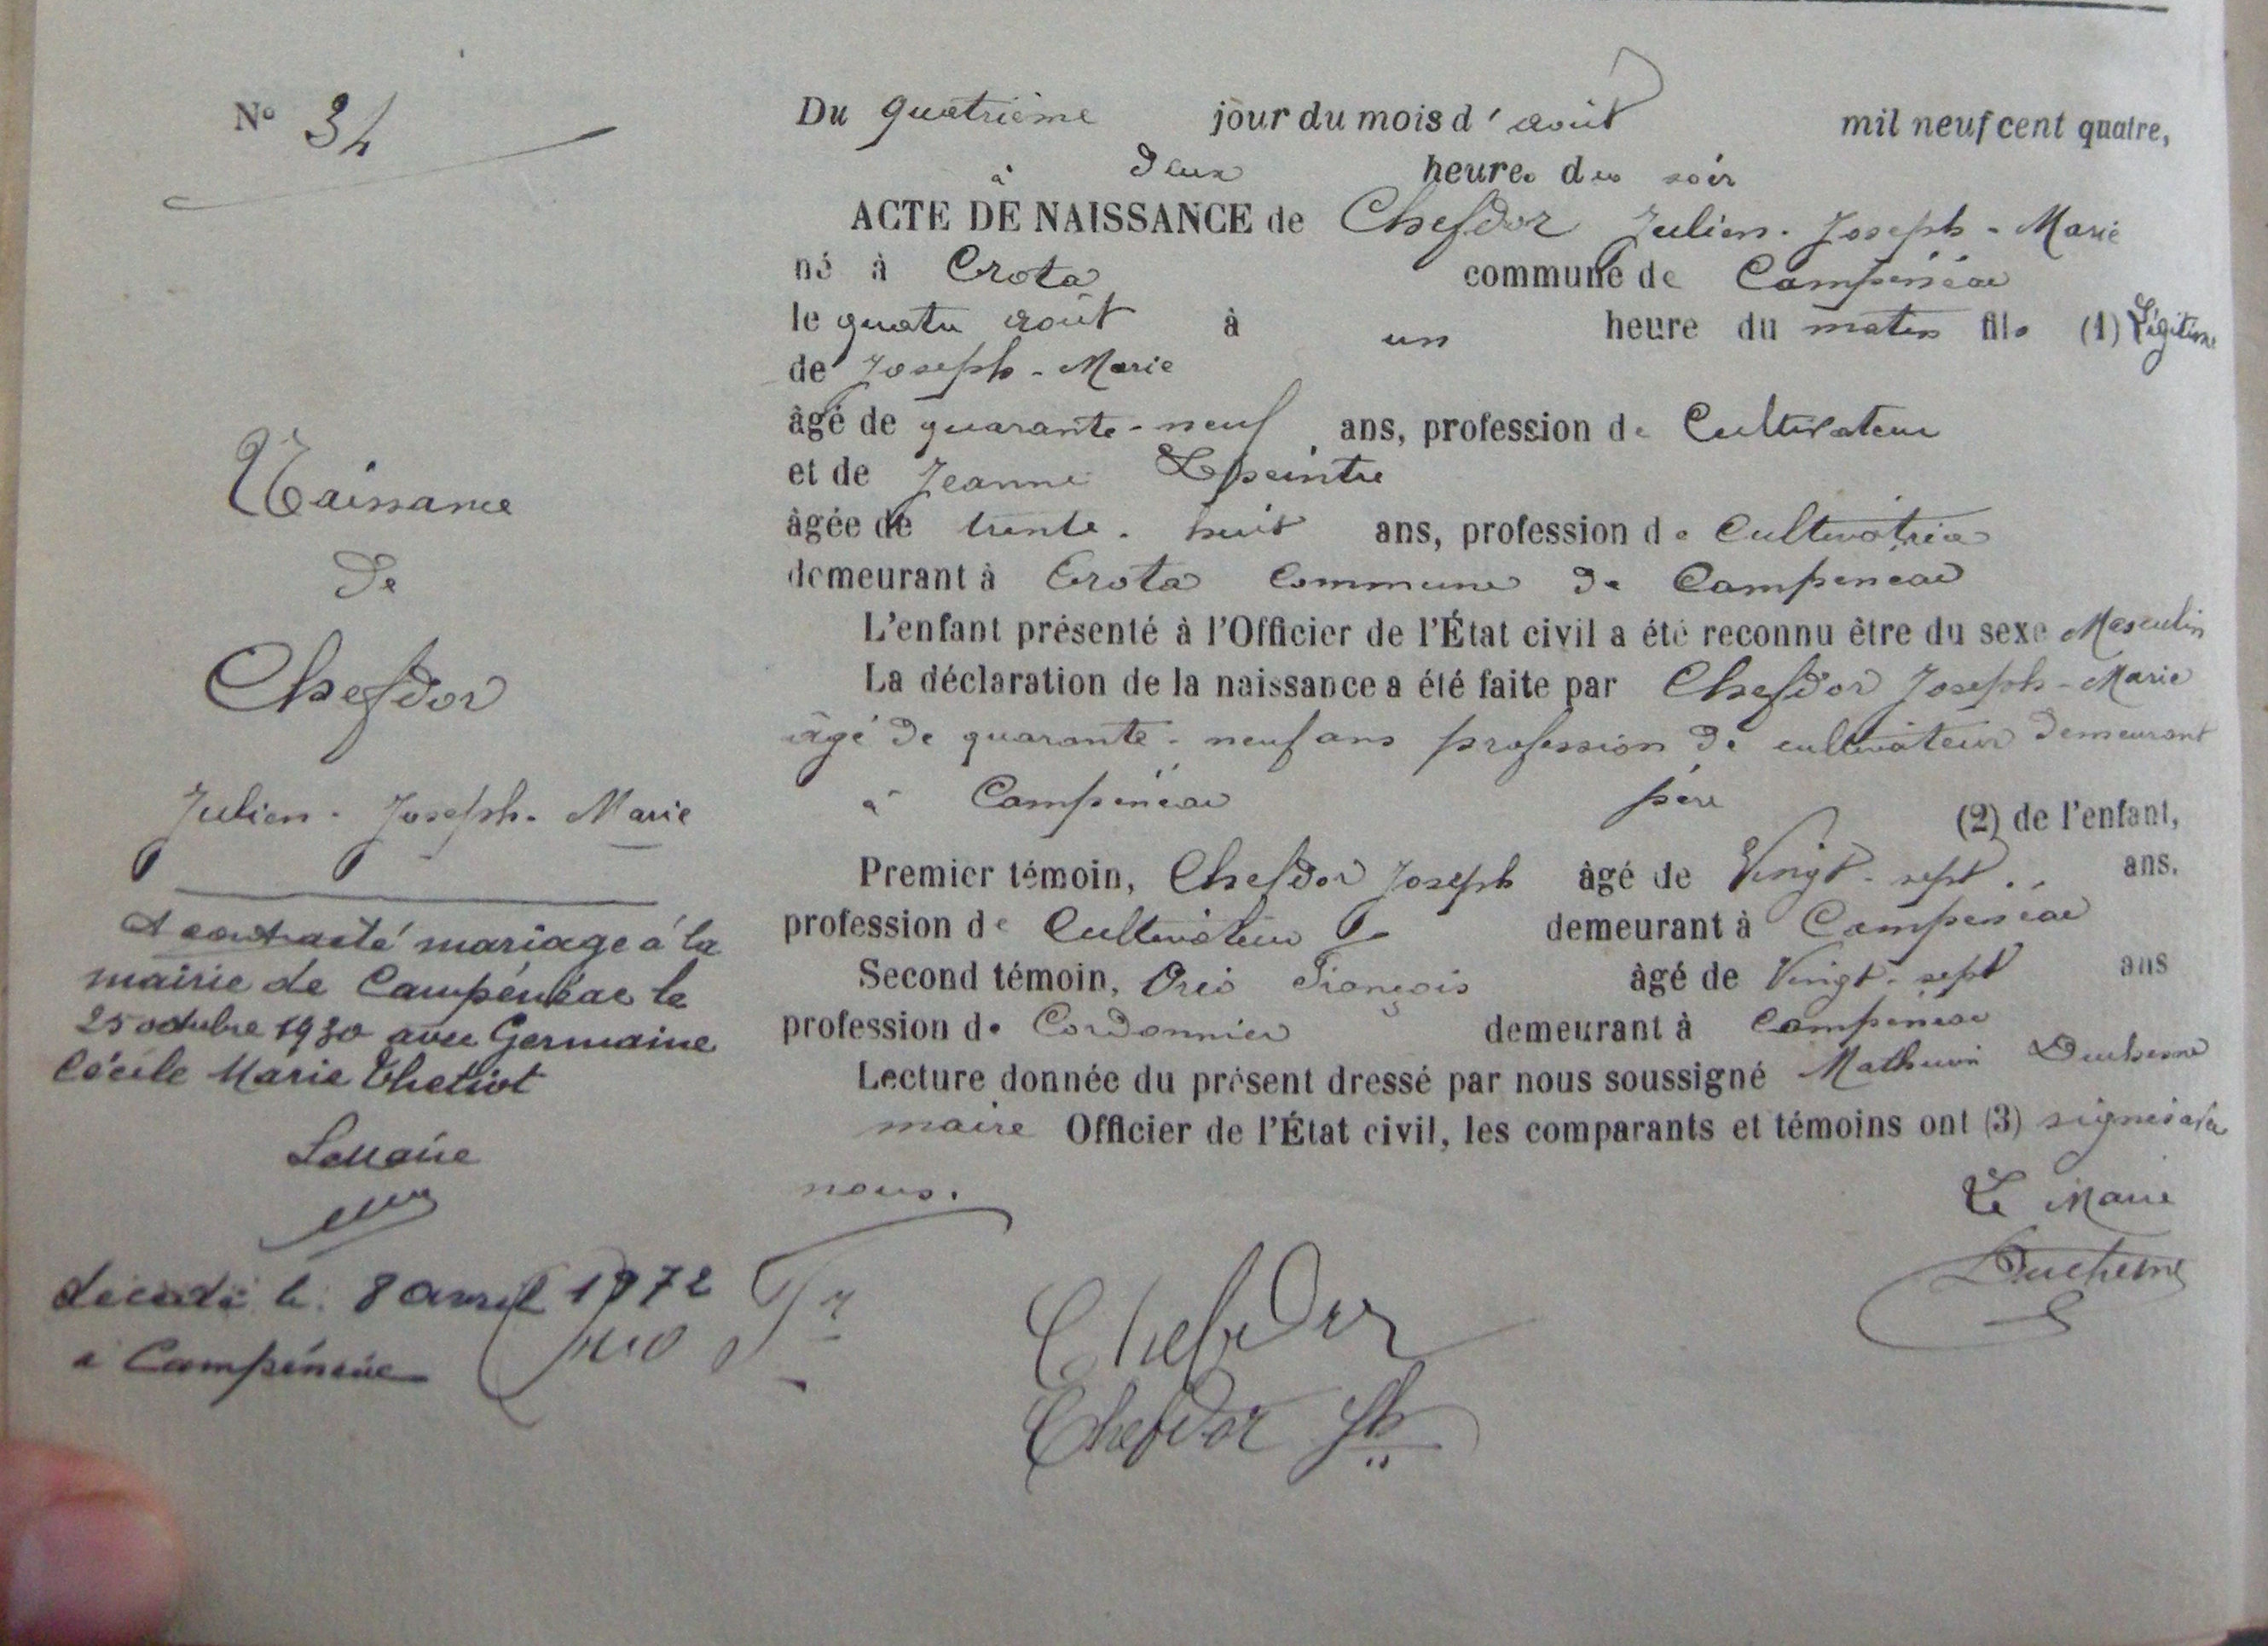 N° 34
Naissance
de
Chefdor
Julien - Joseph - Marie
A contracté mariage à la
mairie de Campénéac le
25 octobre 1930 avec Germaine
Cécile Marie Thetiot
Le Maire
décédé le 8 avril 1972
à Campénéac
Du quatrième jour du mois d'août mil neuf cent quatre,
à deux heures du soir
ACTE DE NAISSANCE de Chefdor Julien - Joseph - Marie
né à Crota commune de Campénéac
le quatre août à un heure du matin fils (1) Légitime
de Joseph - Marie
âgé de quarante - neuf ans, profession de Cultivateur
et de Jeanne Lepeintre
âgée de trente - huit ans, profession de Cultivatrice
demeurant à Crota Commune de Campénéac
L'enfant présenté à l'Officier de l'État civil a été reconnu être du sexe Masculin
La déclaration de la naissance a été faite par Chefdor Joseph - Marie
âgé de quarante - neuf ans profession de cultivateur demeurant
à Campénéac père (2) de l'enfant,
Premier témoin, Chefdor Joseph âgé de Vingt - sept ans.
profession de Cultivateur demeurant à Campénéac
Second témoin, Orio François âgé de Vingt - sept ans
profession de Cordonnier demeurant à Campénéac
Lecture donnée du présent dressé par nous soussigné Mathurin Duchesne
maire Officier de l'État civil, les comparants et témoins ont (3) signés avec
nous.
Le Maire
Duchesne
Orio Fr
Chefdor
Chefdor Jh